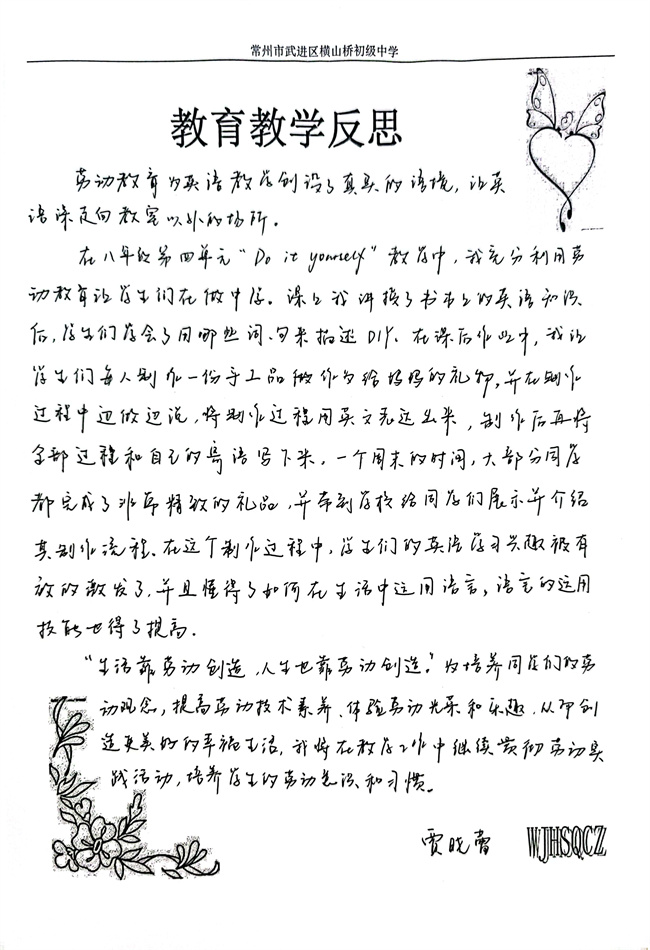 常州市武进区横山桥初级中学
教育教学反思
劳动教育为英语教学创设了真实的语境，让英
语课走向教室以外的场所。
在八年级第四单元“Do it yourself”教学中，我充分利用劳
动教育让学生们在做中学。课上我讲授了书本上的英语知识
后，学生们学会了用哪些词、句来描述DIY。在课后作业中，我让
学生们每人制作一份手工品做作为给妈妈的礼物，并在制作
过程中边做边说，将制作过程用英文表达出来，制作后再将
全部过程和自己的寄语写下来。一个周末的时间，大部分同学
都完成了非常精致的礼品，并带到学校给同学们展示并介绍
其制作流程。在这个制作过程中，学生们的英语学习兴趣被有
效的激发了，并且懂得了如何在生活中运用语言，语言的运用
技能也得了提高。
“生活靠劳动创造，人生也靠劳动创造。”为培养同学们的劳
动观念，提高劳动技术素养、体验劳动光荣和乐趣，从而创
造更美好的幸福生活，我将在教学工作中继续贯彻劳动实
践活动，培养学生的劳动意识和习惯。
贾晓蕾 WJHSQCZ